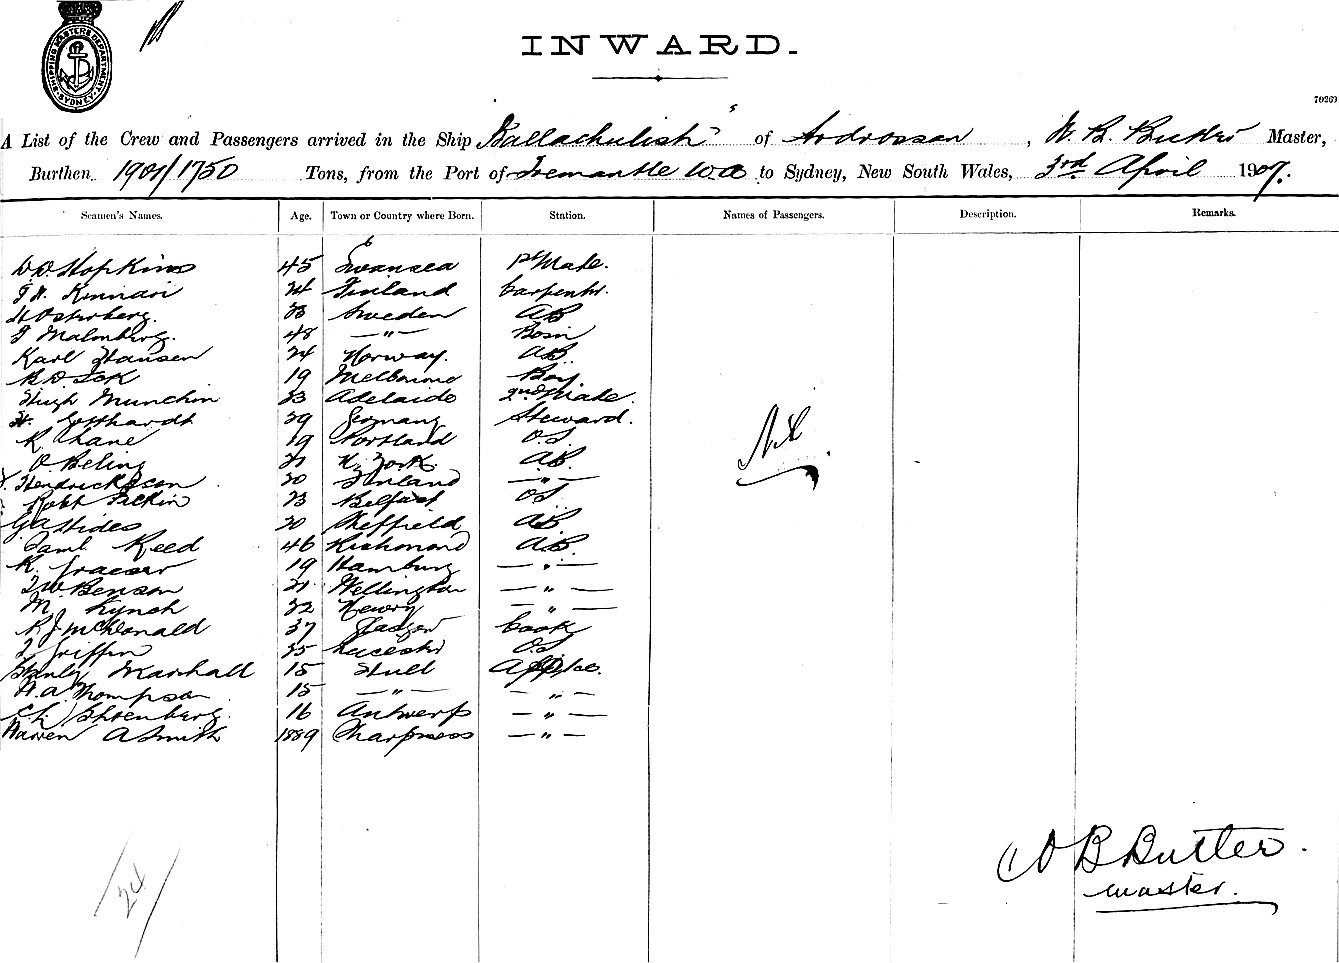 SHIPPING MASTERS DEPARTMENT SYDNEY
INWARD.
70263
A List of the Crew and Passengers arrived in the Ship "Ballachulish" of Ardrossan, W. B. Butter Master,
Burthen 1901/1750 Tons, from the Port of Fremantle WA to Sydney, New South Wales, 3rd April 1907.
Seamen's Names. Age. Town or Country where Born. Station. Names of Passengers. Description. Remarks.
D.D. Hopkins 45 Swansea 1st Mate.
Kinnari 24 Finland Carpentr.
Osterberg. 23 Sweden AB
Malmberg. 48 —"— Bosn
Karl Hansen 24 Norway. AB.
19 Melbourne Boy
Hugh Munchin 23 Adelaide 2nd Mate.
H. Gotthardt 29 Germany Steward.
R. Lane 19 Portland O.S
O Beling 21 N. York. AB.
Hendrickson 20 Finland —"—
Robt 23 Belfast OS
20 Sheffield AB
Saml. Reed 46 Richmond AB.
R. 19 Hamburg —"—
Benson 21 Wellington —"—
M. Lynch 32 Newry —"—
R. J. McDonald 37 Glasgow Cook
Griffin 25 Leicester OS
Stanley Marshall 15 Hull Apptce.
Thompson 15 —"— —"—
16 Antwerp —"—
Warren A Smith 1889 Sharpness —"—
Nil.
24
W B Butter.
Master.